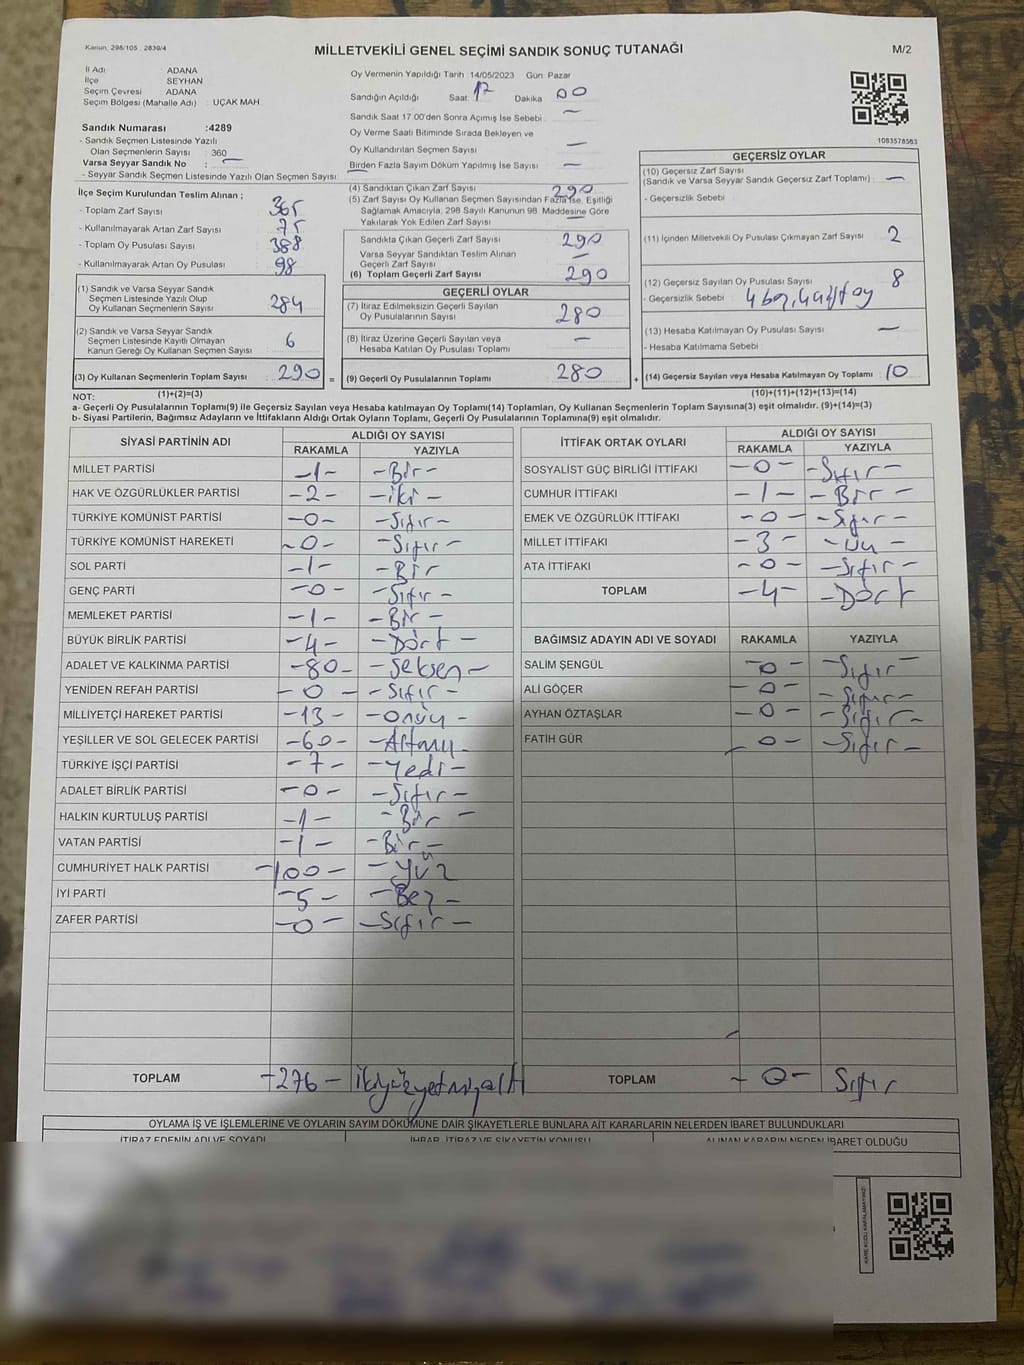 Kanun: 298/105 : 2839/4
MİLLETVEKİLİ GENEL SEÇİMİ SANDIK SONUÇ TUTANAĞI
M/2
İl Adı ADANA
İlçe SEYHAN
Seçim Çevresi ADANA
Seçim Bölgesi (Mahalle Adı) : UÇAK MAH.
Sandık Numarası :4289
- Sandık Seçmen Listesinde Yazılı
Olan Seçmenlerin Sayısı : 360
Varsa Seyyar Sandık No : —
- Seyyar Sandık Seçmen Listesinde Yazılı Olan Seçmen Sayısı:
Oy Vermenin Yapıldığı Tarih 14/05/2023 Gün: Pazar
Sandığın Açıldığı Saat: 17 Dakika 00
Sandık Saat 17.00'den Sonra Açımış İse Sebebi : —
Oy Verme Saati Bitiminde Sırada Bekleyen ve
Oy Kullandırılan Seçmen Sayısı —
Birden Fazla Sayım Döküm Yapılmış İse Sayısı —
1083578563
İlçe Seçim Kurulundan Teslim Alınan ;
- Toplam Zarf Sayısı 365
- Kullanılmayarak Artan Zarf Sayısı 75
- Toplam Oy Pusulası Sayısı 388
- Kullanılmayarak Artan Oy Pusulası 98
(1) Sandık ve Varsa Seyyar Sandık
Seçmen Listesinde Yazılı Olup
Oy Kullanan Seçmenlerin Sayısı 284
(2) Sandık ve Varsa Seyyar Sandık
Seçmen Listesinde Kayıtlı Olmayan
Kanun Gereği Oy Kullanan Seçmen Sayısı 6
(3) Oy Kullanan Seçmenlerin Toplam Sayısı 290
(4) Sandıktan Çıkan Zarf Sayısı 290
(5) Zarf Sayısı Oy Kullanan Seçmen Sayısından Fazla ise, Eşitliği
Sağlamak Amacıyla, 298 Sayılı Kanunun 98. Maddesine Göre
Yakılarak Yok Edilen Zarf Sayısı —
Sandıkta Çıkan Geçerli Zarf Sayısı 290
Varsa Seyyar Sandıktan Teslim Alınan
Geçerli Zarf Sayısı —
(6) Toplam Geçerli Zarf Sayısı 290
GEÇERLİ OYLAR
(7) İtiraz Edilmeksizin Geçerli Sayılan
Oy Pusulalarının Sayısı 280
(8) İtiraz Üzerine Geçerli Sayılan veya
Hesaba Katılan Oy Pusulası Toplamı —
= (9) Geçerli Oy Pusulalarının Toplamı 280
GEÇERSİZ OYLAR
(10) Geçersiz Zarf Sayısı
(Sandık ve Varsa Seyyar Sandık Geçersiz Zarf Toplamı) : —
- Geçersizlik Sebebi :
(11) İçinden Milletvekili Oy Pusulası Çıkmayan Zarf Sayısı 2
(12) Geçersiz Sayılan Oy Pusulası Sayısı 8
- Geçersizlik Sebebi :
(13) Hesaba Katılmayan Oy Pusulası Sayısı —
- Hesaba Katılmama Sebebi :
+ (14) Geçersiz Sayılan veya Hesaba Katılmayan Oy Toplamı 10
NOT: (1)+(2)=(3) (10)+(11)+(12)+(13)=(14)
a- Geçerli Oy Pusulalarının Toplamı(9) ile Geçersiz Sayılan veya Hesaba katılmayan Oy Toplamı(14) Toplamları, Oy Kullanan Seçmenlerin Toplam Sayısına(3) eşit olmalıdır. (9)+(14)=(3)
b- Siyasi Partilerin, Bağımsız Adayların ve İttifakların Aldığı Ortak Oyların Toplamı, Geçerli Oy Pusulalarının Toplamına(9) eşit olmalıdır.
SİYASİ PARTİNİN ADI ALDIĞI OY SAYISI
RAKAMLA YAZIYLA
MİLLET PARTİSİ -1- -Bir-
HAK VE ÖZGÜRLÜKLER PARTİSİ -2- -iki-
TÜRKİYE KOMÜNİST PARTİSİ -0- -Sıfır-
TÜRKİYE KOMÜNİST HAREKETİ -0- -Sıfır-
SOL PARTİ -1- -Bir
GENÇ PARTİ -0- -Sıfır-
MEMLEKET PARTİSİ -1- -Bir-
BÜYÜK BİRLİK PARTİSİ -4- -Dört-
ADALET VE KALKINMA PARTİSİ -80- -Seksen-
YENİDEN REFAH PARTİSİ -0- -Sıfır-
MİLLİYETÇİ HAREKET PARTİSİ -13- -onüç-
YEŞİLLER VE SOL GELECEK PARTİSİ -60- -Altmış-
TÜRKİYE İŞÇİ PARTİSİ -7- -Yedi-
ADALET BİRLİK PARTİSİ -0- -Sıfır-
HALKIN KURTULUŞ PARTİSİ -1- -Bir-
VATAN PARTİSİ -1- -Bir-
CUMHURİYET HALK PARTİSİ -100- -Yüz
İYİ PARTİ -5- -Beş-
ZAFER PARTİSİ -0- -Sıfır-
TOPLAM -276- ikiyüzyetmişaltı
İTTİFAK ORTAK OYLARI ALDIĞI OY SAYISI
RAKAMLA YAZIYLA
SOSYALİST GÜÇ BİRLİĞİ İTTİFAKI -0- -Sıfır-
CUMHUR İTTİFAKI -1- -Bir-
EMEK VE ÖZGÜRLÜK İTTİFAKI -0- -Sıfır-
MİLLET İTTİFAKI -3- -Üç-
ATA İTTİFAKI -0- -Sıfır-
TOPLAM -4- -Dört
BAĞIMSIZ ADAYIN ADI VE SOYADI RAKAMLA YAZIYLA
SALİM ŞENGÜL -0- -Sıfır-
ALİ GÖÇER -0- -Sıfır-
AYHAN ÖZTAŞLAR -0- -Sıfır-
FATİH GÜR -0- -Sıfır-
TOPLAM -0- Sıfır
OYLAMA İŞ VE İŞLEMLERİNE VE OYLARIN SAYIM DÖKÜMÜNE DAİR ŞİKAYETLERLE BUNLARA AİT KARARLARIN NELERDEN İBARET BULUNDUKLARI
İTİRAZ EDENİN ADI VE SOYADI İHBAR, İTİRAZ VE ŞİKAYETİN KONUSU ALINAN KARARIN NEDEN İBARET OLDUĞU
KARE KODU KARALAMAYINIZ!